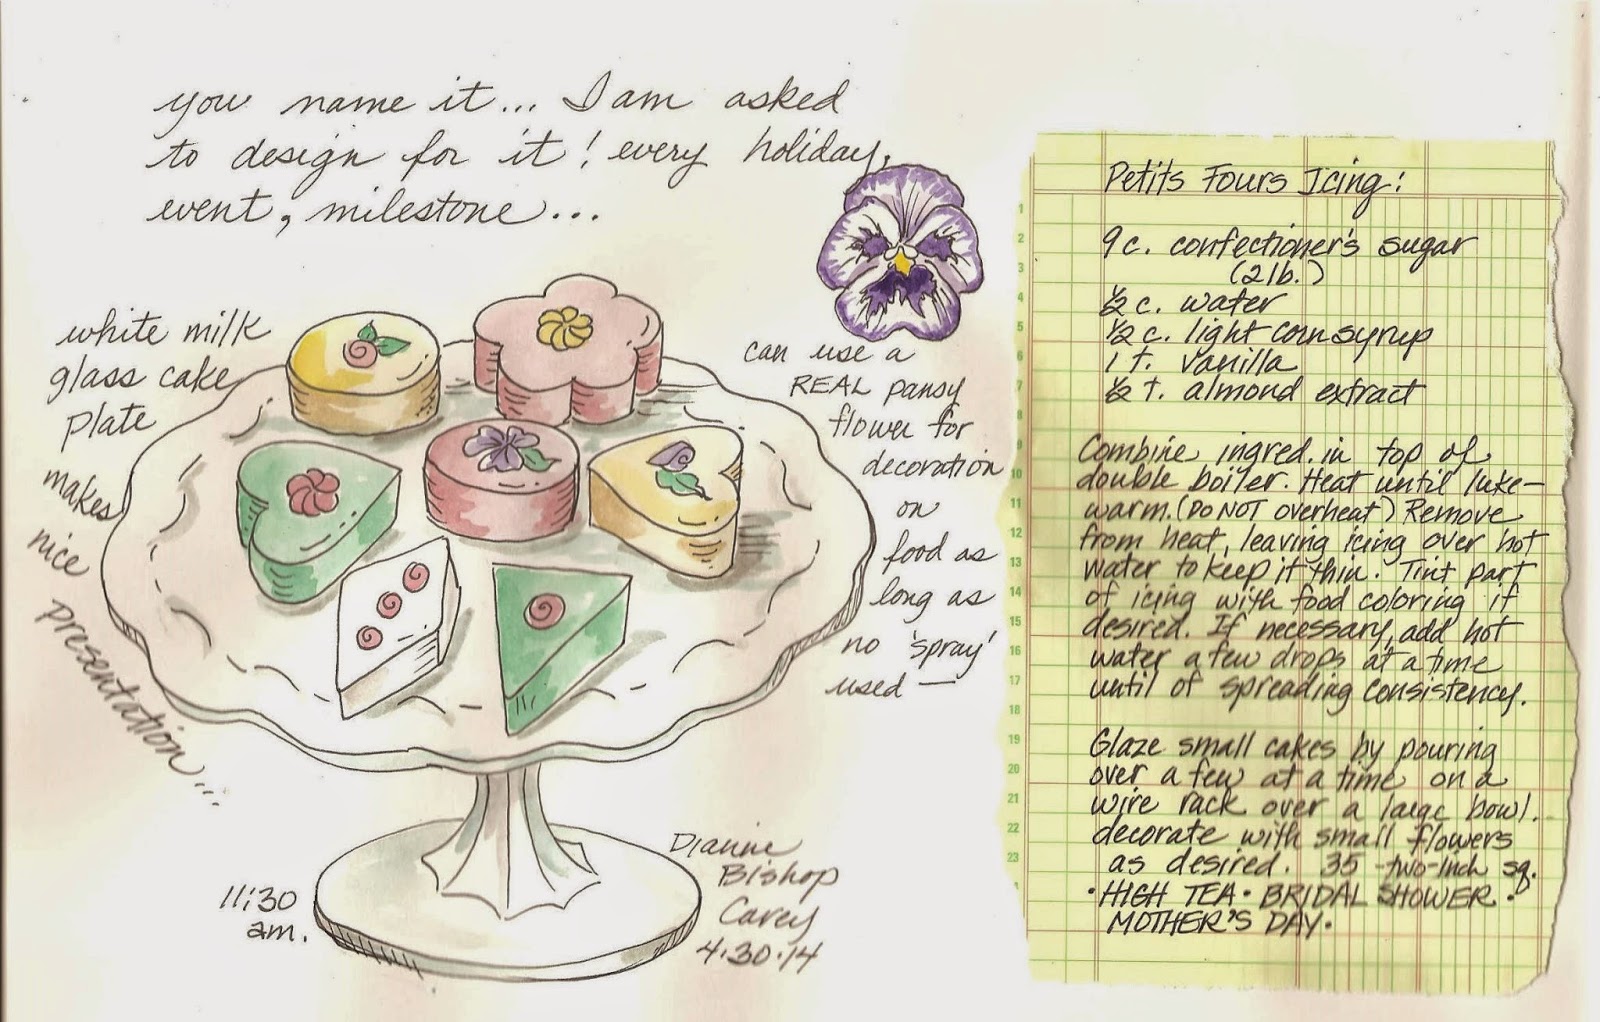 you name it... I am asked
to design for it! every holiday,
event, milestone...
white milk
glass cake
plate
makes
nice
presentation...
can use a
REAL pansy
flower for
decoration
on
food as
long as
no 'spray'
used —
11:30
am.
Dianne
Bishop
Carey
4·30·14
Petits Fours Icing:
9 c. confectioner's sugar
(2 lb.)
½ c. water
½ c. light corn syrup
1 t. vanilla
½ t. almond extract
Combine ingred. in top of
double boiler. Heat until luke-
warm. (DO NOT overheat) Remove
from heat, leaving icing over hot
water to keep it thin. Tint part
of icing with food coloring if
desired. If necessary, add hot
water a few drops at a time
until of spreading consistency.
Glaze small cakes by pouring
over a few at a time on a
wire rack over a large bowl.
decorate with small flowers
as desired. 35 -two-inch sq.
·HIGH TEA· BRIDAL SHOWER·
MOTHER'S DAY·
1
2
3
4
5
6
7
8
9
10
11
12
13
14
15
16
17
18
19
20
21
22
23